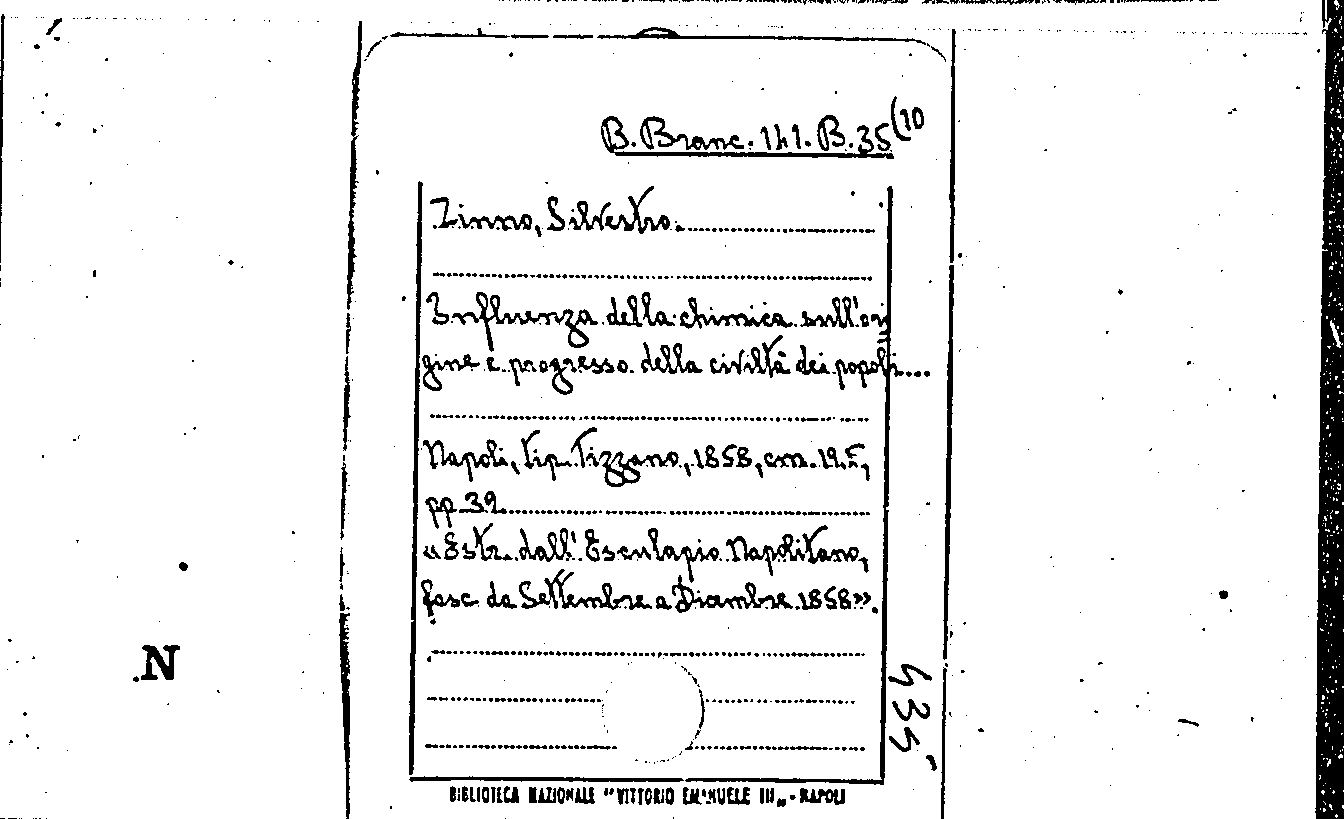 B. Branc. 141. B. 35(10
Zinno, Silvestro.
Influenza della chimica sull'ori
gine e progresso della civiltà dei popoli...
Napoli, tip. Tizzano, 1858, cm. 19,5,
pp. 39
«Estr. dall'Esculapio Napolitano,
fasc. da Settembre a Dicembre 1858».
435
N
BIBLIOTECA NAZIONALE "VITTORIO EMANUELE III„ - NAPOLI